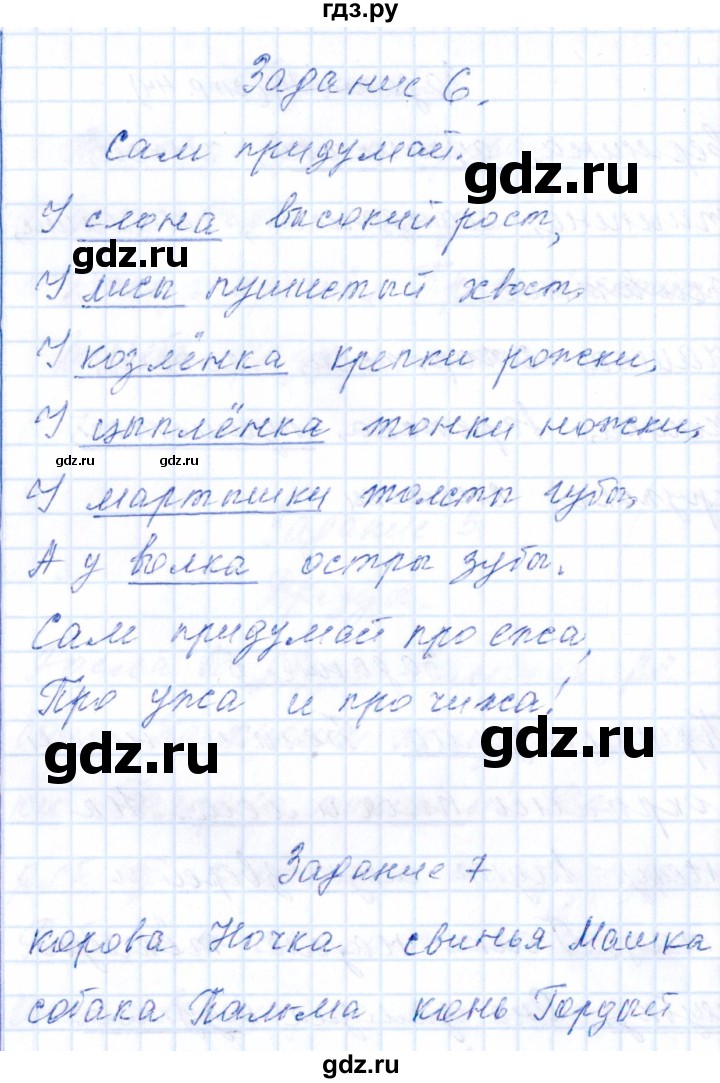 гдз.ру
Задание 6.
Сам придумай.
У слона высокий рост,
gdz.ru
У лисы пушистый хвост,
У козлёнка крепки рожки,
gdz.ru
У цыплёнка тонки ножки,
gdz.ru
gdz.ru
У мартышки толсты губы,
А у волка остры зубы.
gdz.ru
Сам придумай про ежа,
Про ужа и про чижа!
gdz.ru
gdz.ru
Задание 7
корова Ночка свинья Машка
gdz.ru
собака Пальма конь Гордый
gdz.ru